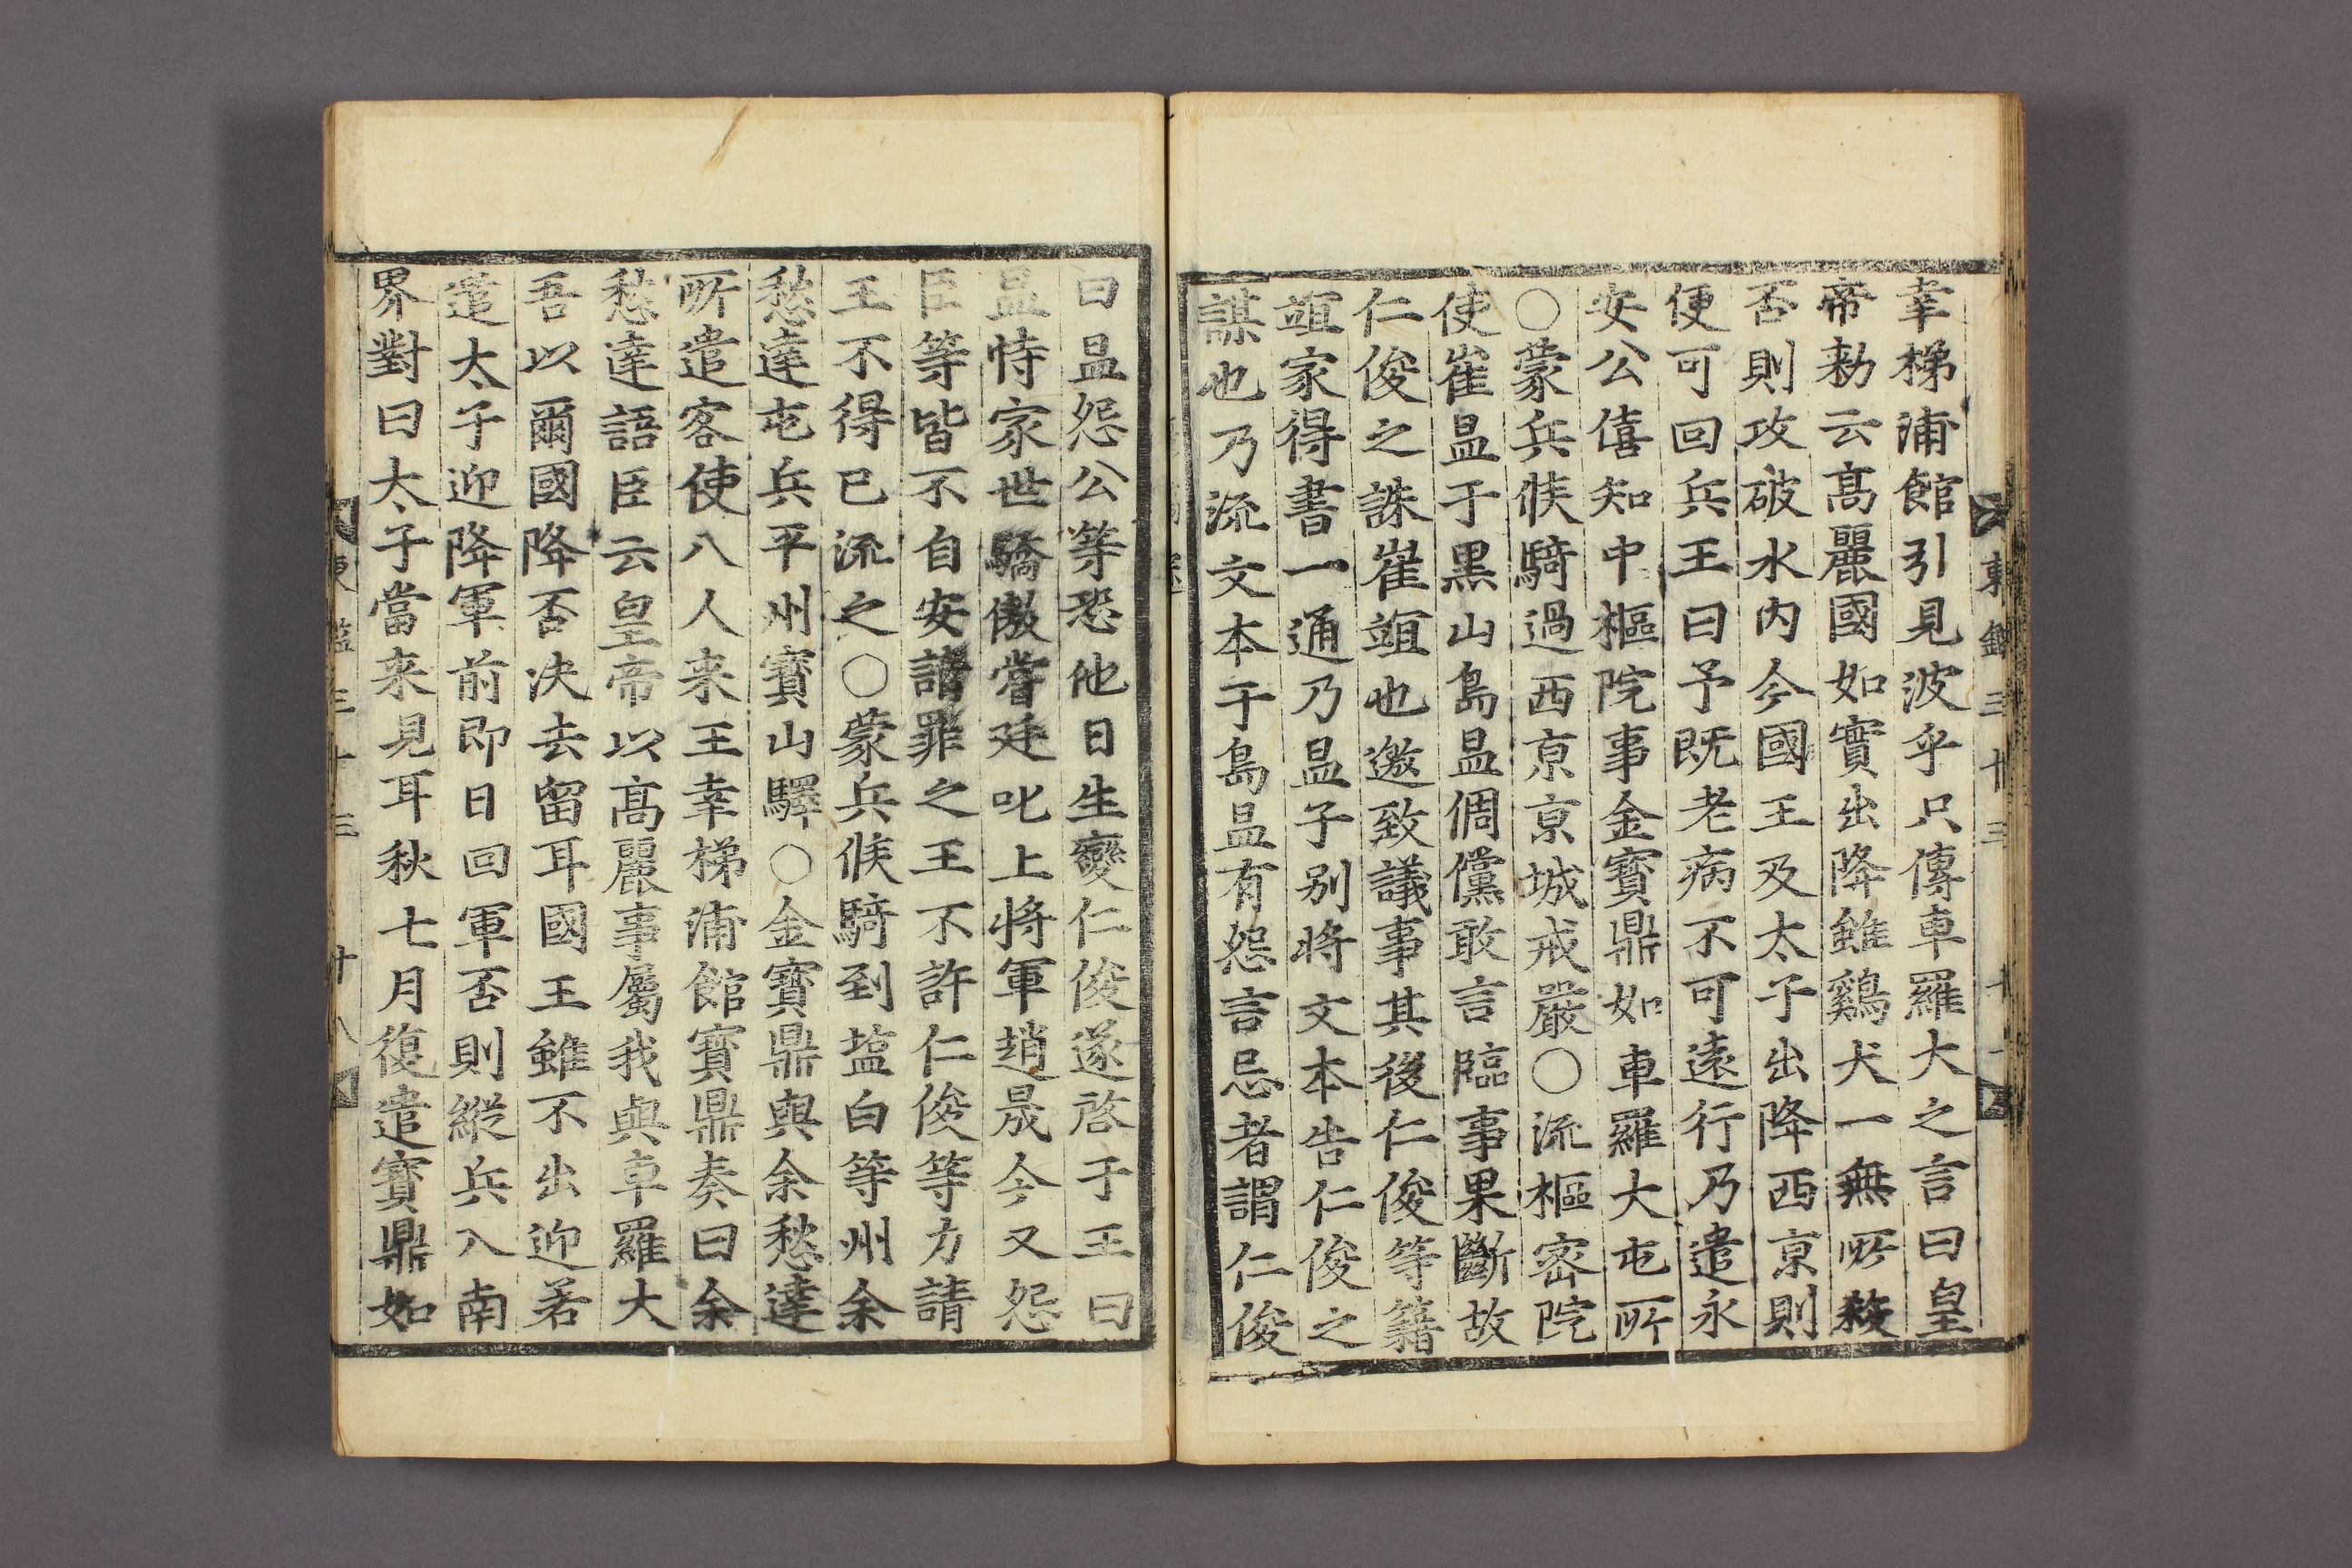 東鑑 三十三 十
幸梯浦館引見波乎只傳車羅大之言曰皇
帝勑云髙麗國如實出降雖鷄犬一無所殺
否則攻破水内今國王及太子出降西亰則
便可回兵王曰予既老病不可遠行乃遣永
安公僖知中樞院事金寶鼎如車羅大屯所
○蒙兵候騎過西亰亰城戒嚴○流樞密院
使崔昷于黒山島昷倜儻敢言臨事果斷故
仁俊之誅崔竩也邀致議事其後仁俊等籍
竩家得書一通乃昷子别将文本告仁俊之
謀也乃流文本于島昷有怨言忌者謂仁俊
曰昷怨公等恐他日生變仁俊遂啓于王曰
昷恃家世驕傲嘗廷叱上将軍趙晟今又怨
臣等皆不自安請罪之王不許仁俊等力請
王不得已流之○蒙兵候騎到塩白等州余
愁達屯兵平州寳山驛○金寳鼎與余愁達
所遣客使八人来王幸梯浦館寳鼎奏曰余
愁達語臣云皇帝以髙麗事屬我與車羅大
吾以爾國降否决去留耳國王雖不出迎若
遣太子迎降軍前即日回軍否則縱兵入南
界對曰太子當来見耳秋七月復遣寳鼎如
東鑑 三十三 十八